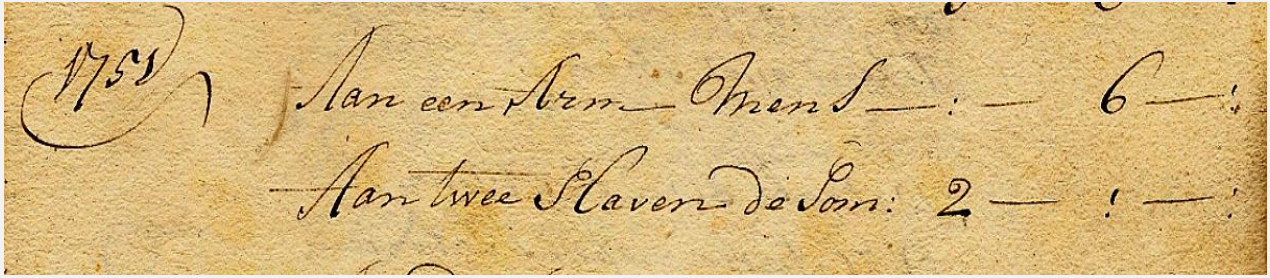 1751
Aan een Arm Mens — : — 6 — :
Aan twee Slaven de Som: 2 — : — :